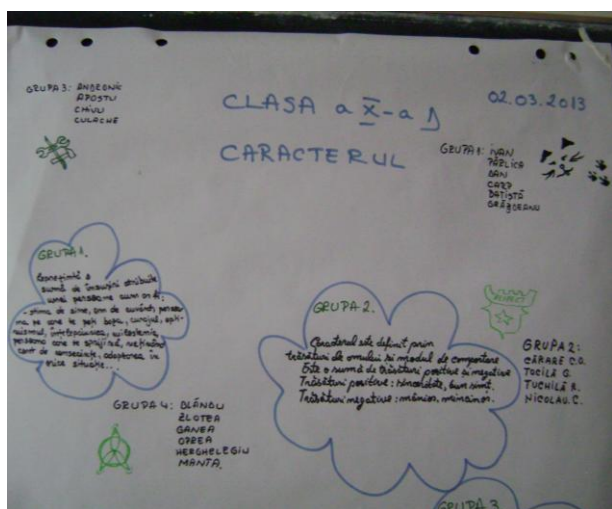 GRUPA 3: ANDRONIC
APOSTU
CHIULI
CULACHE
CLASA a X-a D
02.03.2013
CARACTERUL
GRUPA 1: IVAN
PÂRLICA
DAN
CARP
BATISTĂ
GRĂJDEANU
GRUPA 1.
Reprezintă o
sumă de însușiri atribuite
unei persoane cum ar fi:
- stima de sine, om de cuvânt, persoa-
na pe care te poți baza, curajul, opti-
mismul, înțelepciunea, milostenia,
persoana care te sprijină,
cont de consecințe, adaptarea în
orice situație...
GRUPA 2.
Caracterul este definit prin
trăsături ale omului și modul de comportare
Este o sumă de trăsături pozitive și negative
Trăsături pozitive: sinceritate, bun simț.
Trăsături negative: mânios, mincinos.
RESPECT
GRUPA 2:
CĂRARE C.G.
TOCILĂ G.
TUCHILĂ R.
NICOLAU. C.
GRUPA 4: BLÂNDU
ZLOTEA
GANEA
OPREA
HERGHELEGIU
MANTA.
GRUPA 3